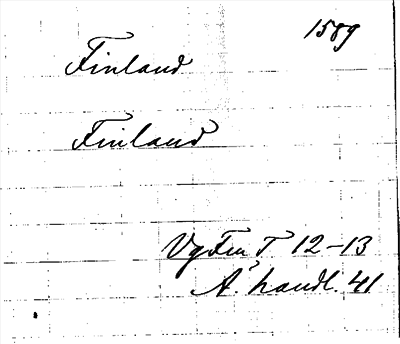 1589
Finland
Finland
VgFm T 12-13
A. handl. 41